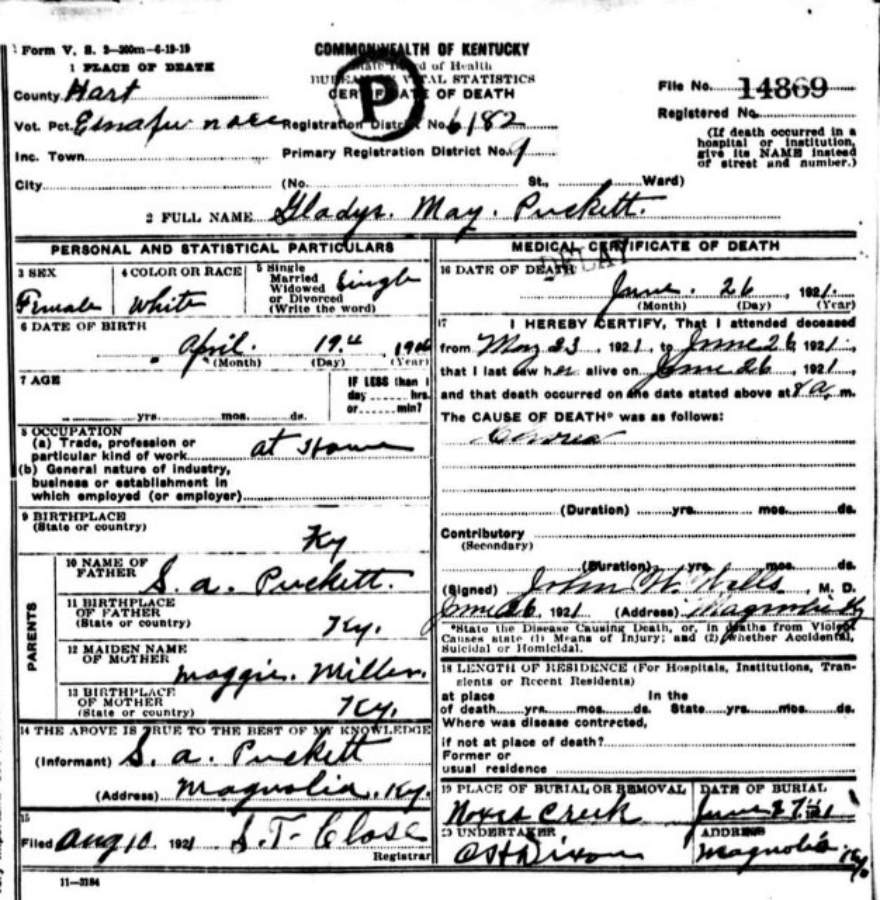 Form V. S. 2-300m-6-19-19
COMMONWEALTH OF KENTUCKY
State Board of Health
BUREAU OF VITAL STATISTICS
CERTIFICATE OF DEATH
P
1 PLACE OF DEATH
County Hart
File No. 14869
Vot. Pct. Registration District No. 6182
Registered No.
Inc. Town Primary Registration District No. 9
(If death occurred in a hospital or institution, give its NAME instead of street and number.)
City (No. St., Ward)
2 FULL NAME Gladys. May. Puckett.
PERSONAL AND STATISTICAL PARTICULARS
3 SEX Female
4 COLOR OR RACE White
5 Single Married Widowed or Divorced (Write the word) Single
6 DATE OF BIRTH
April. 19
(Month) (Day) (Year)
7 AGE
yrs. mos. ds.
IF LESS than 1 day hrs. or min?
8 OCCUPATION
(a) Trade, profession or
particular kind of work at Home
(b) General nature of industry,
business or establishment in
which employed (or employer)
9 BIRTHPLACE
(State or country)
Ky
PARENTS
10 NAME OF FATHER S. a. Puckett.
11 BIRTHPLACE OF FATHER
(State or country) Ky.
12 MAIDEN NAME OF MOTHER Maggie. Miller.
13 BIRTHPLACE OF MOTHER
(State or country) Ky.
14 THE ABOVE IS TRUE TO THE BEST OF MY KNOWLEDGE
(Informant) S. a. Puckett
(Address) Magnolia. Ky.
15
Filed Aug 10. 1921 S. T. Close
Registrar
11-3184
MEDICAL CERTIFICATE OF DEATH
DELAY
16 DATE OF DEATH
June. 26, 1921.
(Month) (Day) (Year)
17 I HEREBY CERTIFY, That I attended deceased
from May 23, 1921, to June 26, 1921,
that I last saw her alive on June 26, 1921
and that death occurred on the date stated above at 8 a. m.
The CAUSE OF DEATH* was as follows:
Chorea
(Duration) yrs. mos. ds.
Contributory
(Secondary)
(Duration) yrs. mos. ds.
(Signed) John W. Wells, M. D.
June 26, 1921 (Address) Magnolia Ky
*State the Disease Causing Death, or, in deaths from Violent
Causes state (1) Means of Injury; and (2) whether Accidental,
Suicidal or Homicidal.
18 LENGTH OF RESIDENCE (For Hospitals, Institutions, Transients or Recent Residents)
at place In the
of death yrs. mos. ds. State yrs. mos. ds.
Where was disease contracted,
if not at place of death?
Former or
usual residence
19 PLACE OF BURIAL OR REMOVAL DATE OF BURIAL
Creek June 27 21
20 UNDERTAKER ADDRESS
Dixon Magnolia Ky.